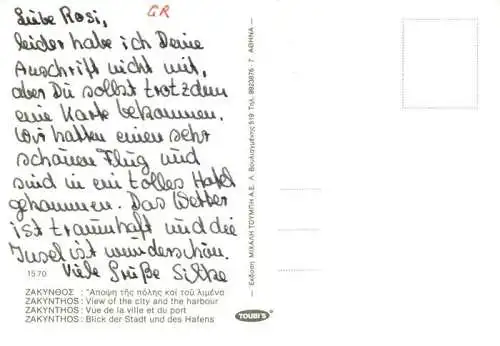 GR
Liebe Rosi,
leider habe ich Deine
Anschrift nicht mit,
aber Du sollst trotzdem
eine Karte bekommen.
Wir hatten einen sehr
schönen Flug und
sind in ein tolles Hotel
gekommen. Das Wetter
ist traumhaft und die
Insel ist wunderschön.
Viele Grüße Silke
1570
ΖΑΚΥΝΘΟΣ : Ἄποψη τῆς πόλης καί τοῦ λιμένα
ZAKYNTHOS : View of the city and the harbour
ZAKYNTHOS : Vue de la ville et du port
ZAKYNTHOS : Blick der Stadt und des Hafens
Εκδοση ΜΙΧΑΛΗ ΤΟΥΜΠΗ Α.Ε. Λ. Βουλιαγμένης 519 Τηλ. 9923876 - 7 ΑΘΗΝΑ
TOUBI'S